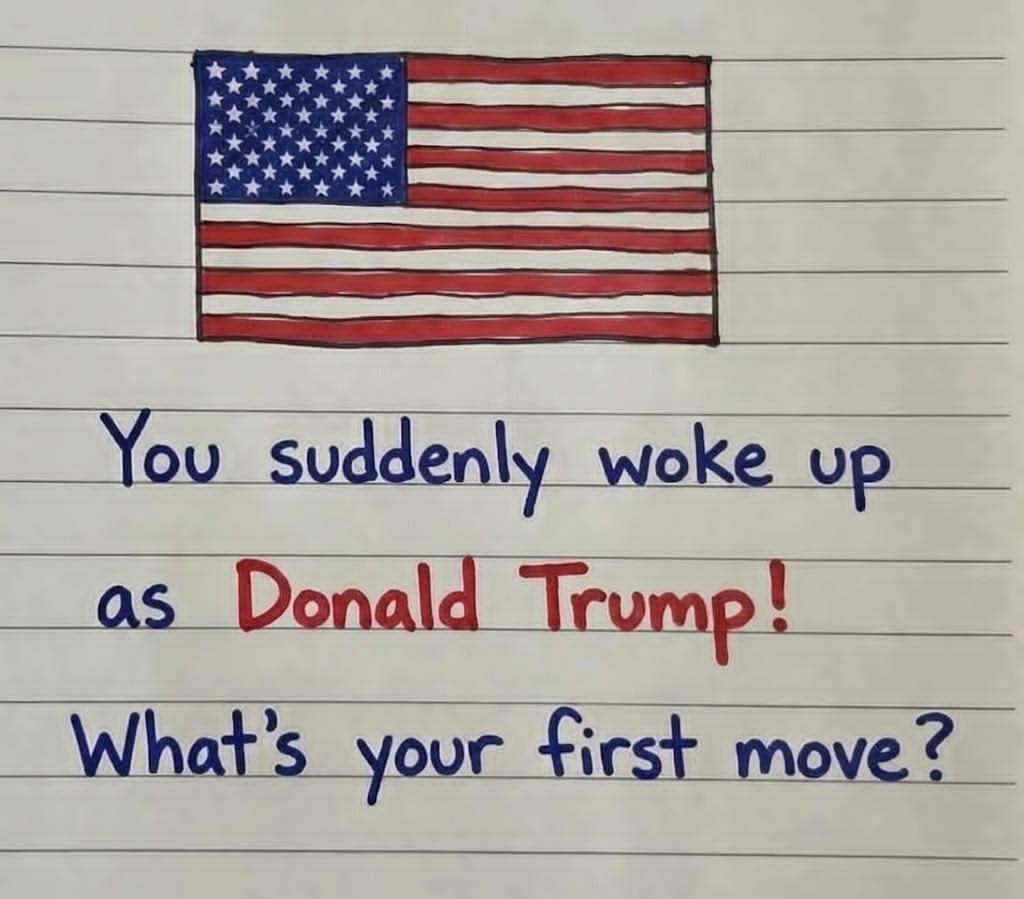 You suddenly woke up
as Donald Trump!
What's your first move?